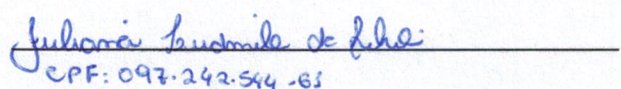 Juliana Ludmila de Lihoi
CPF: 097.242.544-61